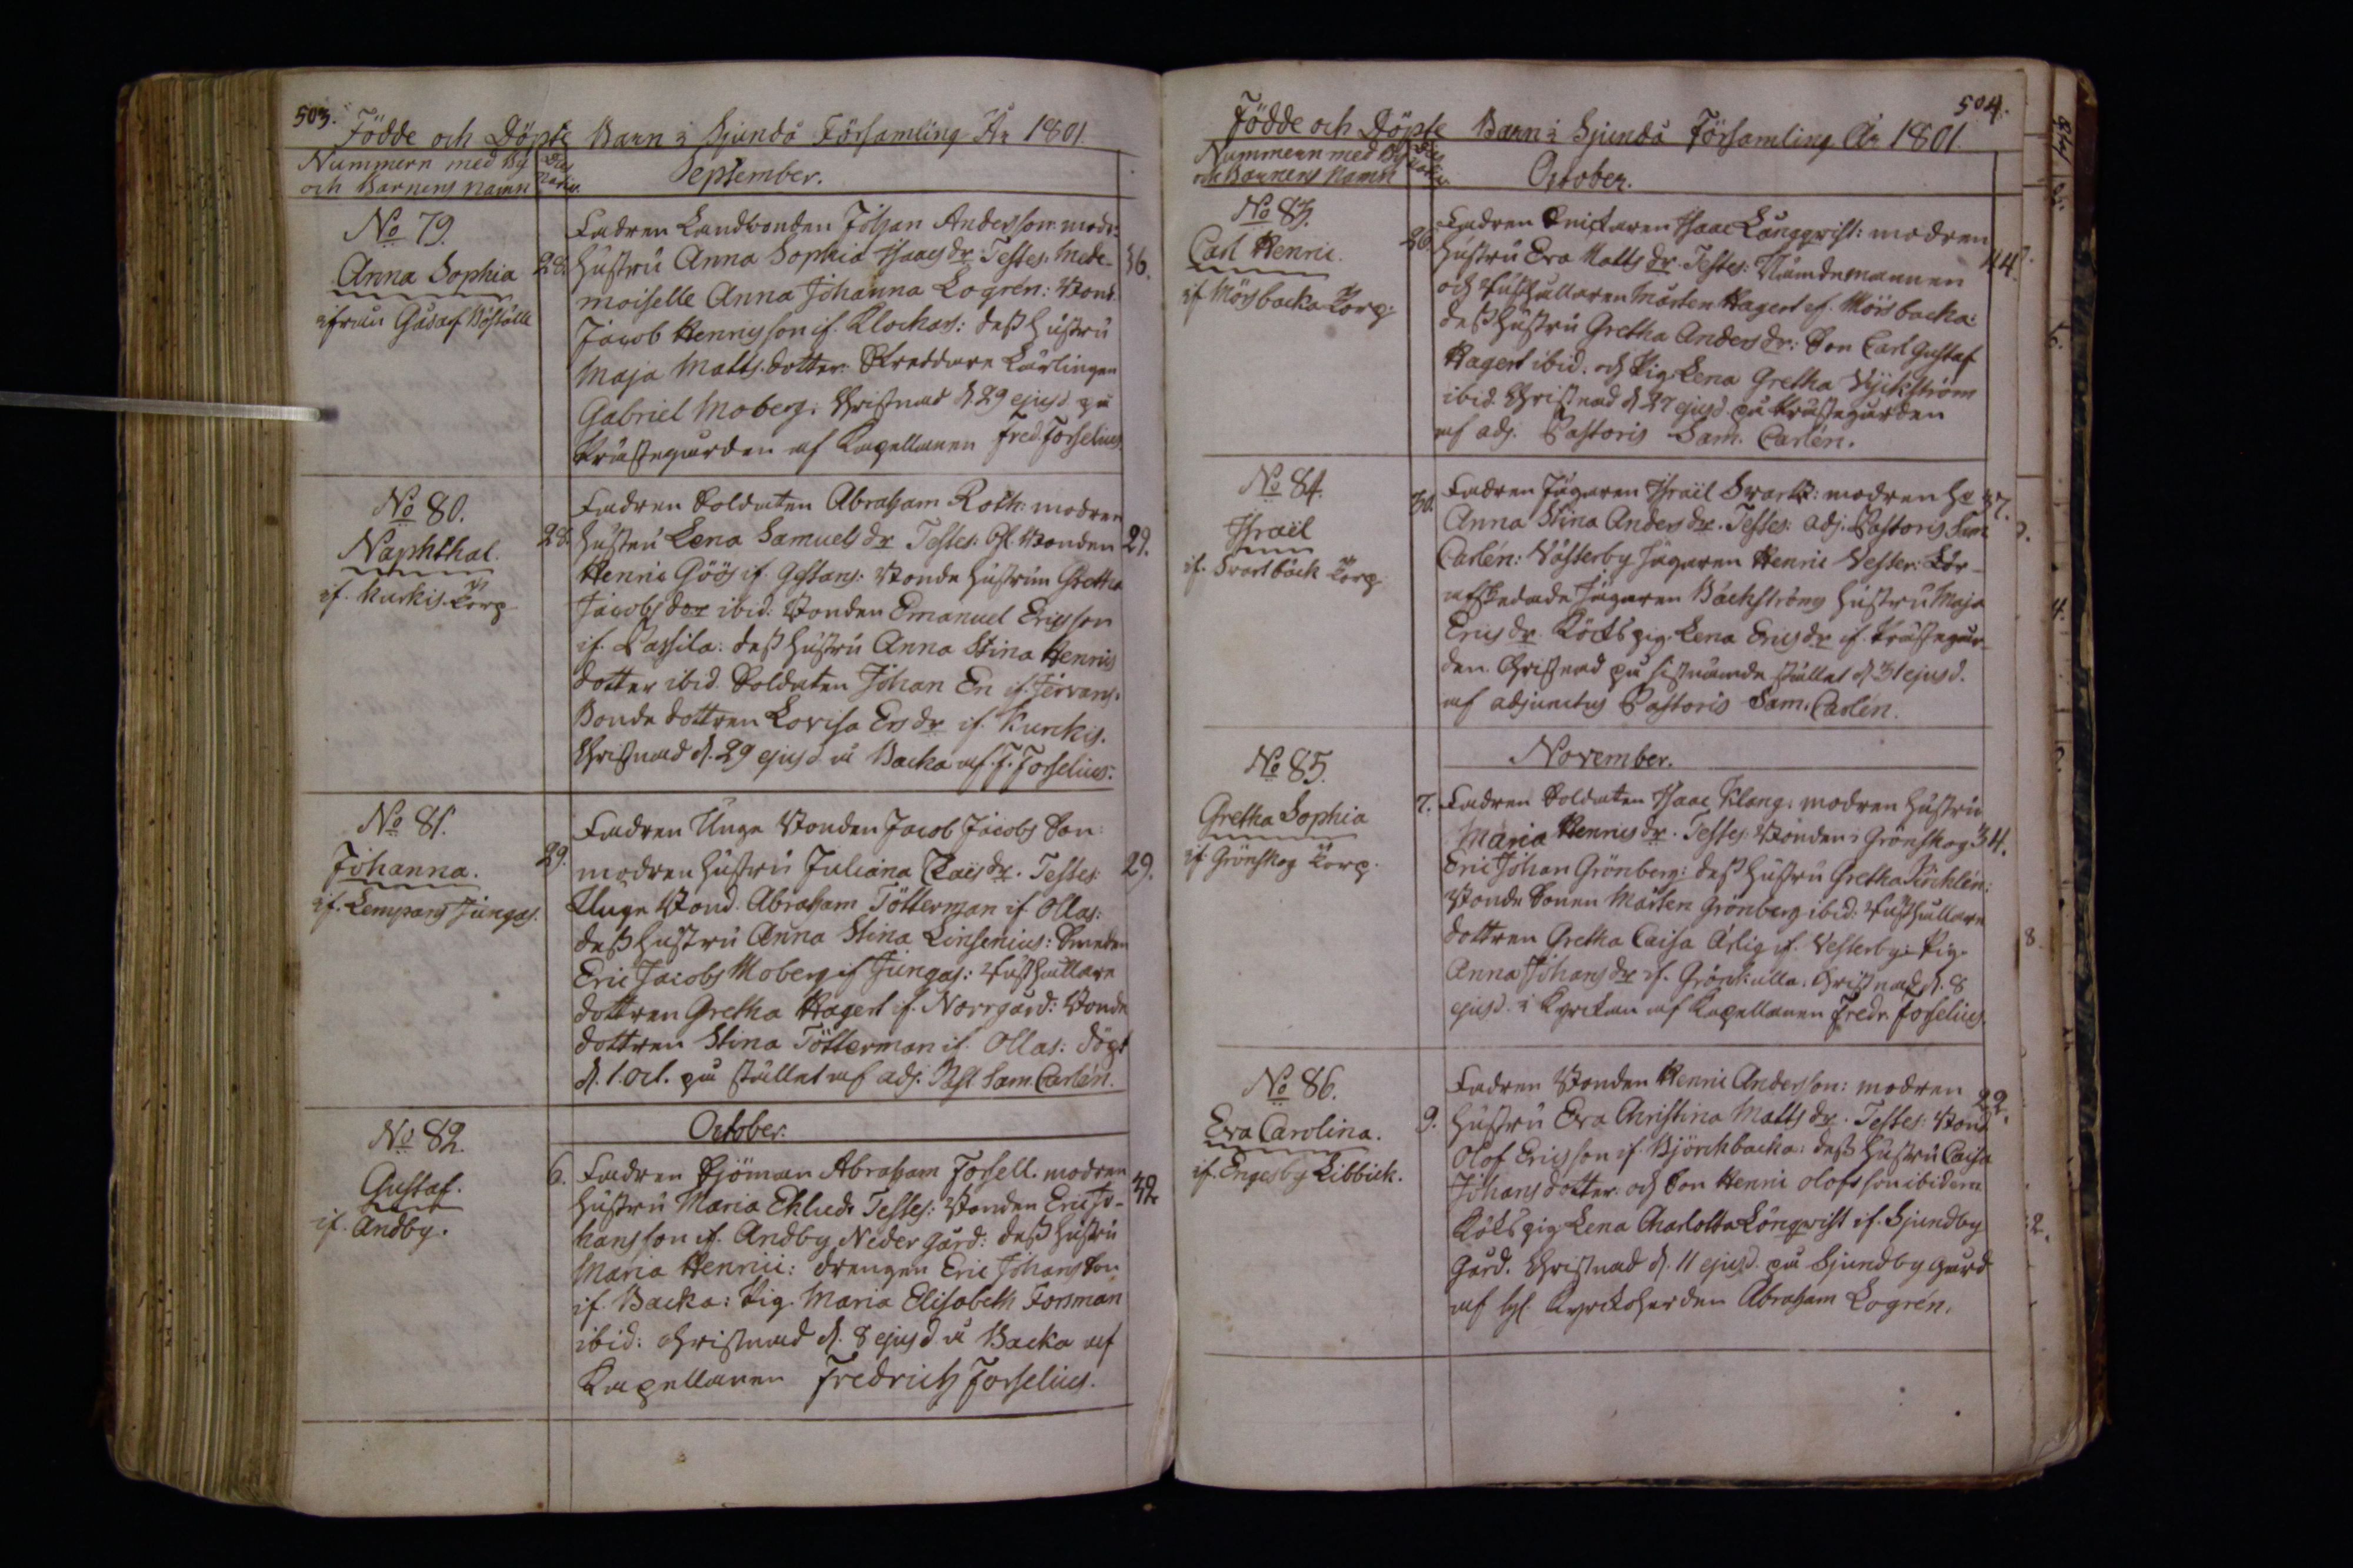 503.
Födde och Döpte Barn i Sjundå Församling År 1801.
Nummern med By
och Barnens namn
Dies
Nativ.
September.
No 79.
Anna Sophia
ifrån Gårdsf. Boställe
28.
Fadren Landbonden Johan Andersson: modr:
hustru Anna Sophia Isaacs dr Testes: Made-
moiselle Anna Johanna Logrén: Bond.
Jacob Henricsson if. Klockars: dess hustru
Maja Matts dotter: Skreddare Lärlingen
Gabriel Moberg: Christnad d. 29 ejusd. på
Prästegården af Kapellanen Fred. Forselius.
36.
No 80.
Naphthal.
if. Kurkis Torp
28.
Fadren Soldaten Abraham Roth: modren
hustru Lena Samuels dr Testes: Gl. Bonden
Henric Göös if. Gestans: Bonde hustrun Gretha
Jacobs dotr ibid: Bonden Emanuel Ericsson
if. Passila: dess hustru Anna Stina Henrics
dotter ibid. Soldaten Johan En if. Jervans:
Bonde dottren Lovisa Ers dr if. Kurckis.
Christnad d. 29 ejusd. å Backa af F. Forselius.
29.
No 81.
Johanna.
if. Lempans Jungas.
29.
Fadren Unge Bonden Jacob Jacobs Son:
modren hustru Juliana Claës dr. Testes:
Unge Bond. Abraham Tötterman if. Ollas:
dess hustru Anna Stina Linsenius: Smeden
Eric Jacobs Moberg if Jungas: Rusthållare
dottren Gretha Hagert if. Norrgård: Bonde
dottren Stina Tötterman if. Ollas: döpt
d. 1. Oct. på stället af adj. Past. Sam. Carlén.
29.
No 82.
Gustaf.
if. Andby.
October.
6.
Fadren Sjöman Abraham Forsell. modren
hustru Maria Eklud. Testes: Bonden Eric Jo-
hansson if. Andby Nedergård: dess hustru
Maria Henrici: drengen Eric Johans Son
if. Backa: Pig. Maria Elisabeth Forsman
ibid: Christnad d. 8 ejusd å Backa af
Kapellanen Fredrich Forselius.
504.
Födde och Döpte Barn i Sjundå Församling År 1801.
Nummern med By
och Barnens Namn
Dies
Nativ.
October.
No 83.
Carl Henric.
if Mörsbacka Torp.
26.
Fadren Snickaren Isaac Långqvist: modren
hustru Eva Matts dr. Testes: Nämdemannen
och Rusthållaren Mårten Hagert if. Mörsbacka:
dess hustru Gretha Anders dr: Son Carl Gustaf
Hagert ibid. och Pig. Lena Gretha Vijkström
ibid. Christnad d 27 ejusd. på Prästegården
af adj. Pastoris Sam. Carlén.
44.
No 84.
Israël
if. Svartbäck Torp
30.
Fadren Jägaren Israël Svartz: modren H.
Anna Stina Anders dr. Testes: adj. Pastoris Sam
Carlén: Västerby Jägaren Henric Vester: För-
afskedade Jägaren Bäckströms hustru Maja
Erics dr. Köcks pig. Lena Erics dr if. Prästegår-
den. Christnad på sistnämde stället d. 31 ejusd.
af adjunctus Pastoris Sam. Carlén.
37.
November.
No 85.
Gretha Sophia
if. Grönskog Torp.
7.
Fadren Soldaten Isaac Klang: modren hustru
Maria Henrics dr. Testes: Bonden i Grönskog
Eric Johan Grönberg: dess hustru Gretha Pirchlén:
Bonde Sonen Mårten Grönberg ibid: Rusthållare
dottren Gretha Caisa Ärlig if. Vesterby: Pig.
Anna Johans dr if. Grönkulla. Christnad d. 8
ejusd. i Kyrckan af Kapellanen Fredr. Forselius.
34.
No 86.
Eva Carolina.
if. Engesby Libbick.
9.
Fadren Bonden Henric Andersson: modren
hustru Eva Christina Matts dr. Testes: Bond.
Olof Ericsson if. Björckbacka: dess hustru Caisa
Johans dotter: och Son Henric Olofsson ibidem
Köks pig Lena Charlotta Lönqvist if. Sjundby
Gård. Christnad d. 11 ejusd. på Sjundby gård
af Kyrckoherden Abraham Logrén.
22.